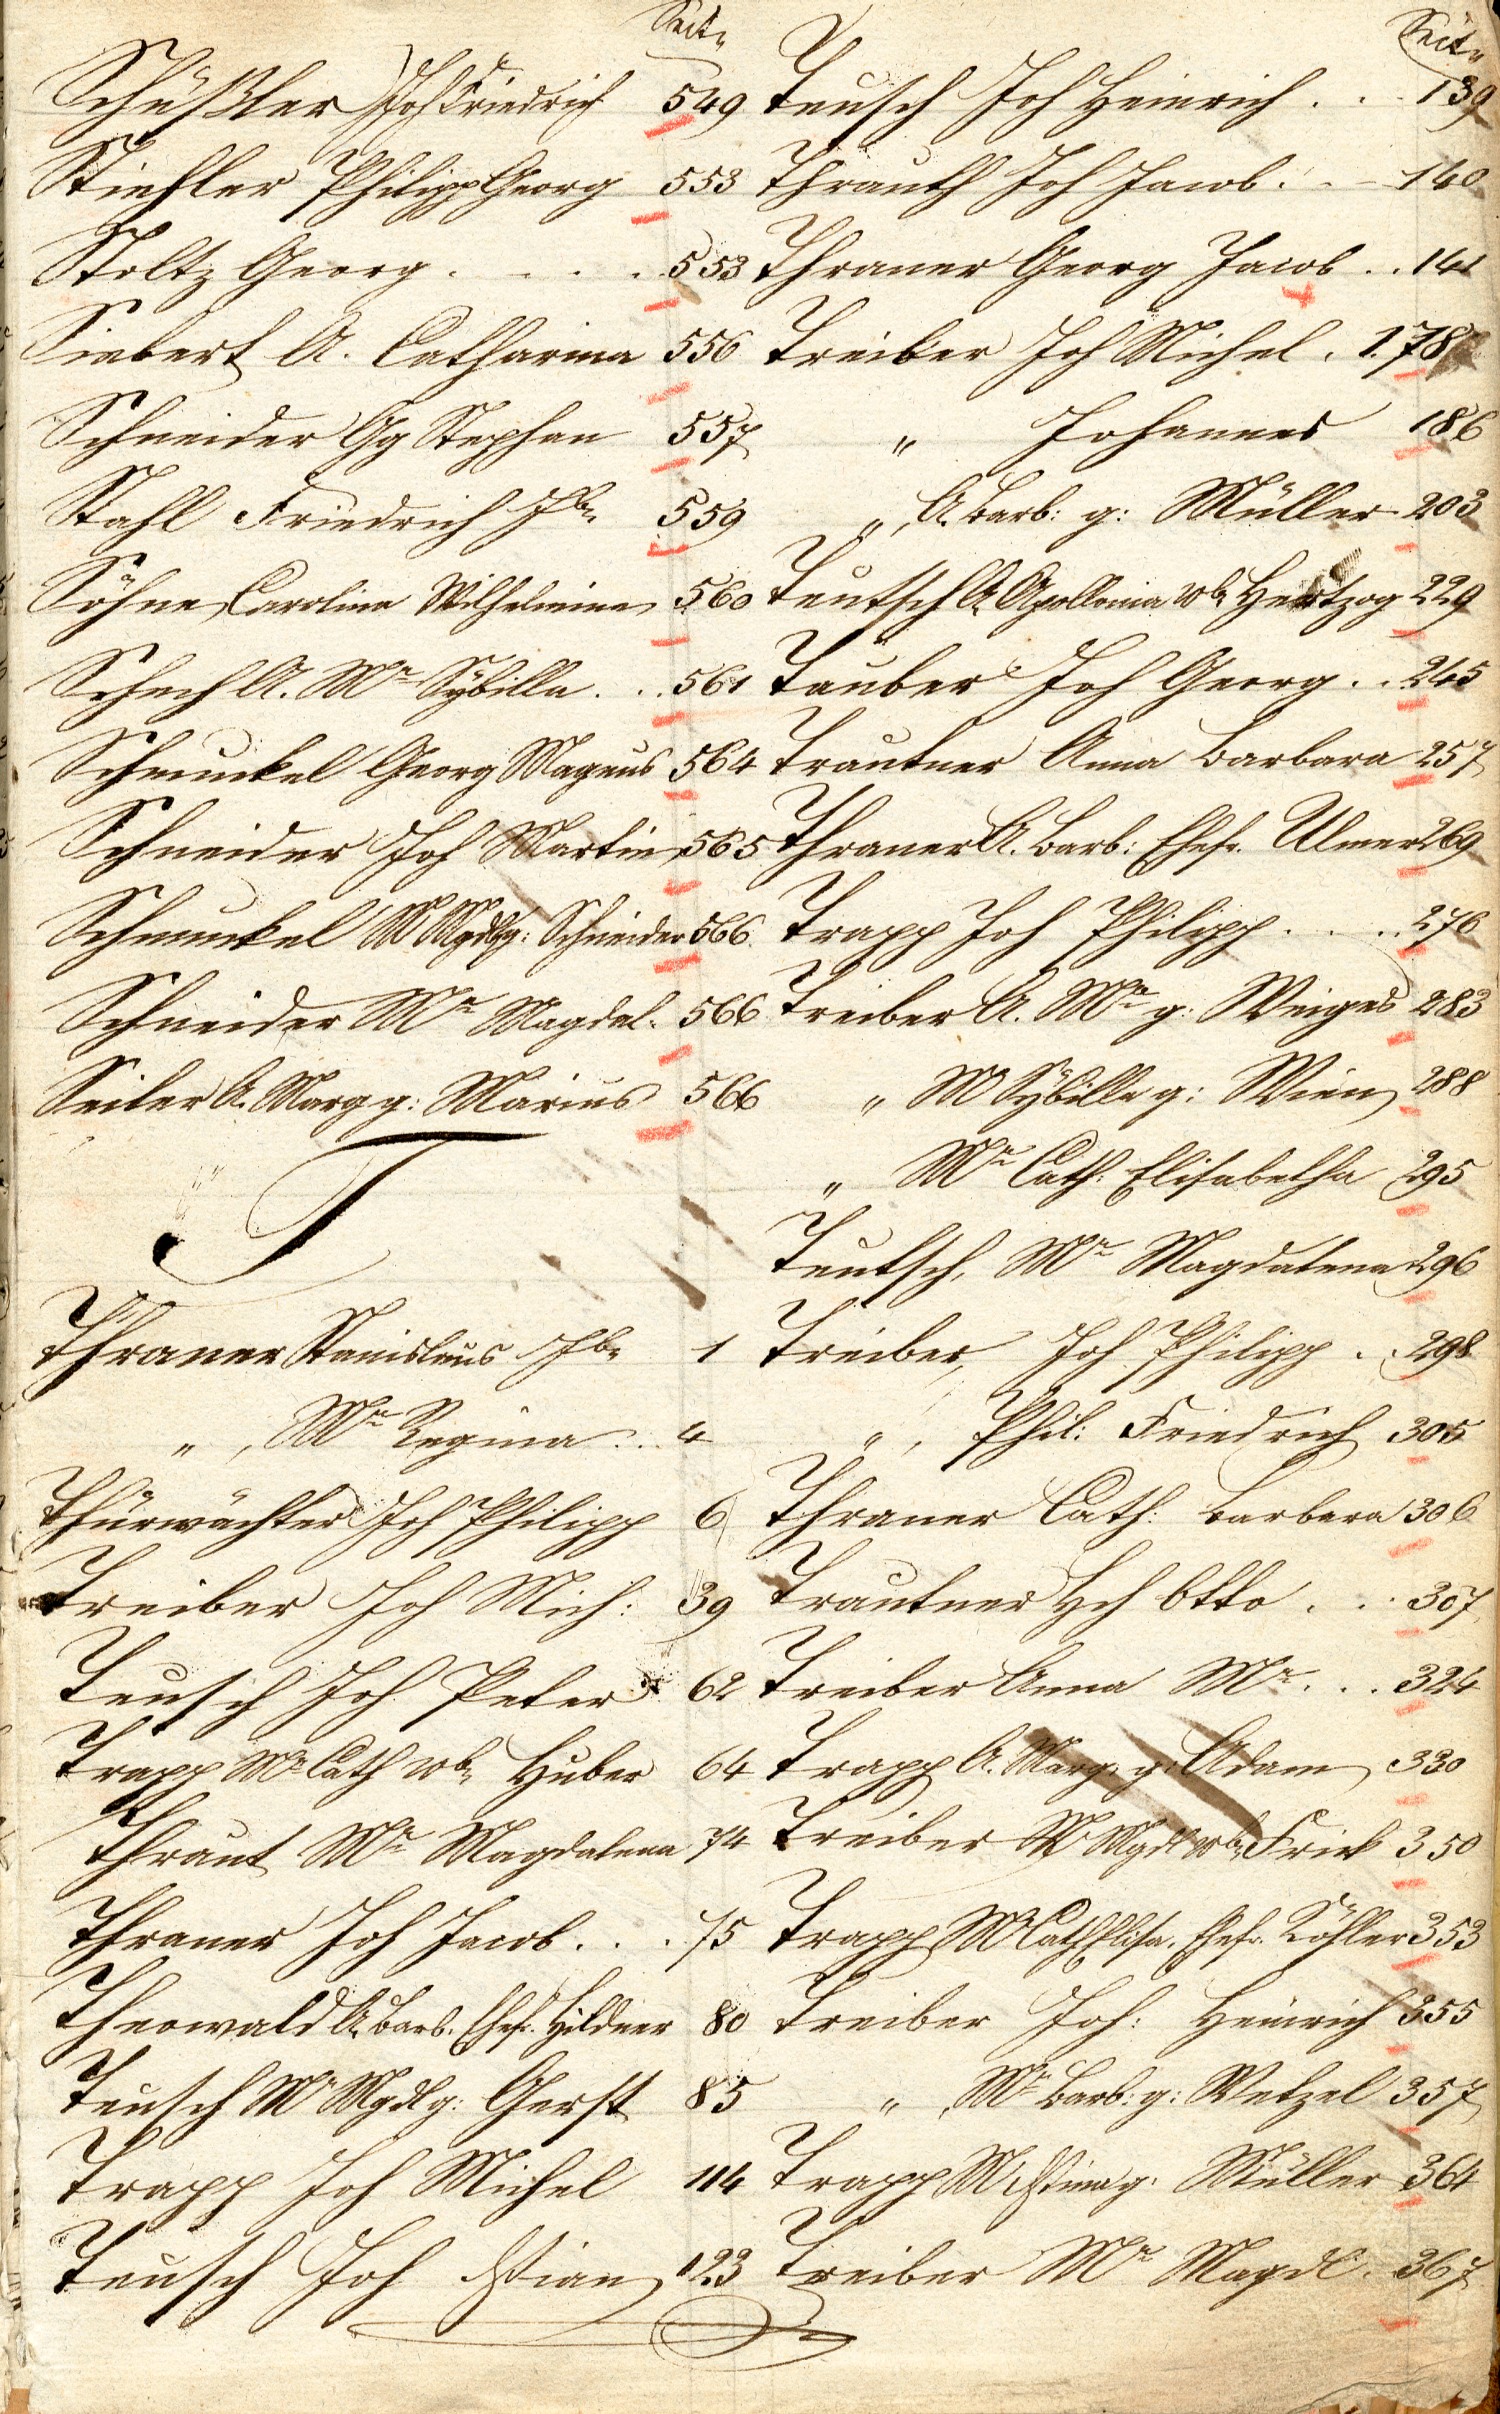 Seite
Schüßler Joh Friedrich 549
Stiehler Philipp Georg 553
Stoltz Georg . . . . 553
Siebert A. Catharina 556
Schneider Gg Stephan 557
Stahl Friedrich Jb 559
Söhne, Caroline Wilhelmine 560
Schech A. Mr Sybilla . . . 561
Schmuckel Georg Magnus 564
Schneider Joh Martin 565
Schmuckel M Mgdl g: Schneider 566
Schneider Mr Magdal. 566
Seiler A. Marg g: Marius 566
T
Thraner Stanislaus Jb 1
" , Mr Regina . . . 4
Thürwächter Joh Philipp 6
Treiber Joh Mich: 39
Teusch Joh Peter 62
Trapp Mr Cath Wb Huber 64
Thraut Mr Magdalena 74
Thraner Joh Jacob . . . 75
Theowald A. Barb. Ehefr. Hildner 80
Teusch Mr Mgdl g: Gerst 85
Trapp Joh Michel 114
Teusch Joh Xstian 123
Seite
Teusch Joh Heinrich . . . 139
Thrauth Joh Jacob . . . 140
Thraner Georg Jacob . . 141
Treiber Joh Michel . 178
" Johannes 186
" , A. Barb: g: Müller 203
Teutsch A. Apollonia Wb Hertzog 229
Tauber Joh Georg . . 245
Trautner Anna Barbara 257
Thraner A. Barb: Ehefr. Ulmer 269
Trapp Joh Philipp . . . . 270
Treiber A. Mr g: Weiges 283
" M Sybilla g: Wien 288
" Mr Cath: Elisabetha 295
Teutsch, Mr Magdalena 296
Treiber, Joh Philipp . . 298
" , Phil: Friedrich 305
Thraner Cath: Barbara 306
Trautner Hch Otto . . . 307
Treiber Anna Mr . . . 324
Trapp A. Marg. g: Adam 330
Treiber M Mgdl Wb Frick 350
Trapp M Cath Elisa. Ehefr. Köhler 353
Treiber Joh: Heinrich 355
" , Mr Barb: g: Wetzel 357
Trapp M Xstina g. Müller 364
Treiber Mr Magdl. 367